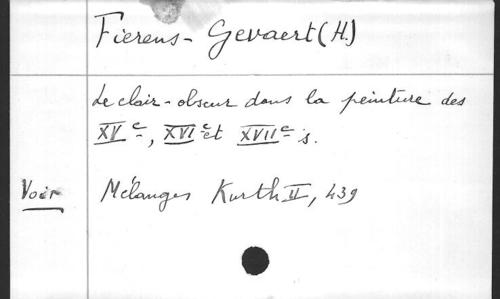 Fierens-Gevaert (H.)
Le clair-obscur dans la peinture des
XVe, XVIe et XVIIe s.
Voir Mélanges Kurth II, 439